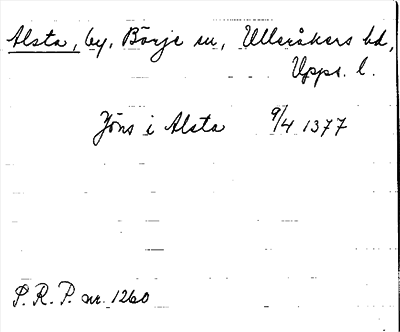 Alsta, by, Börje sn, Ulleråkers hd,
Upps. l.
Jöns i Alsta 9/4 1377
S.R.P. nr. 1260